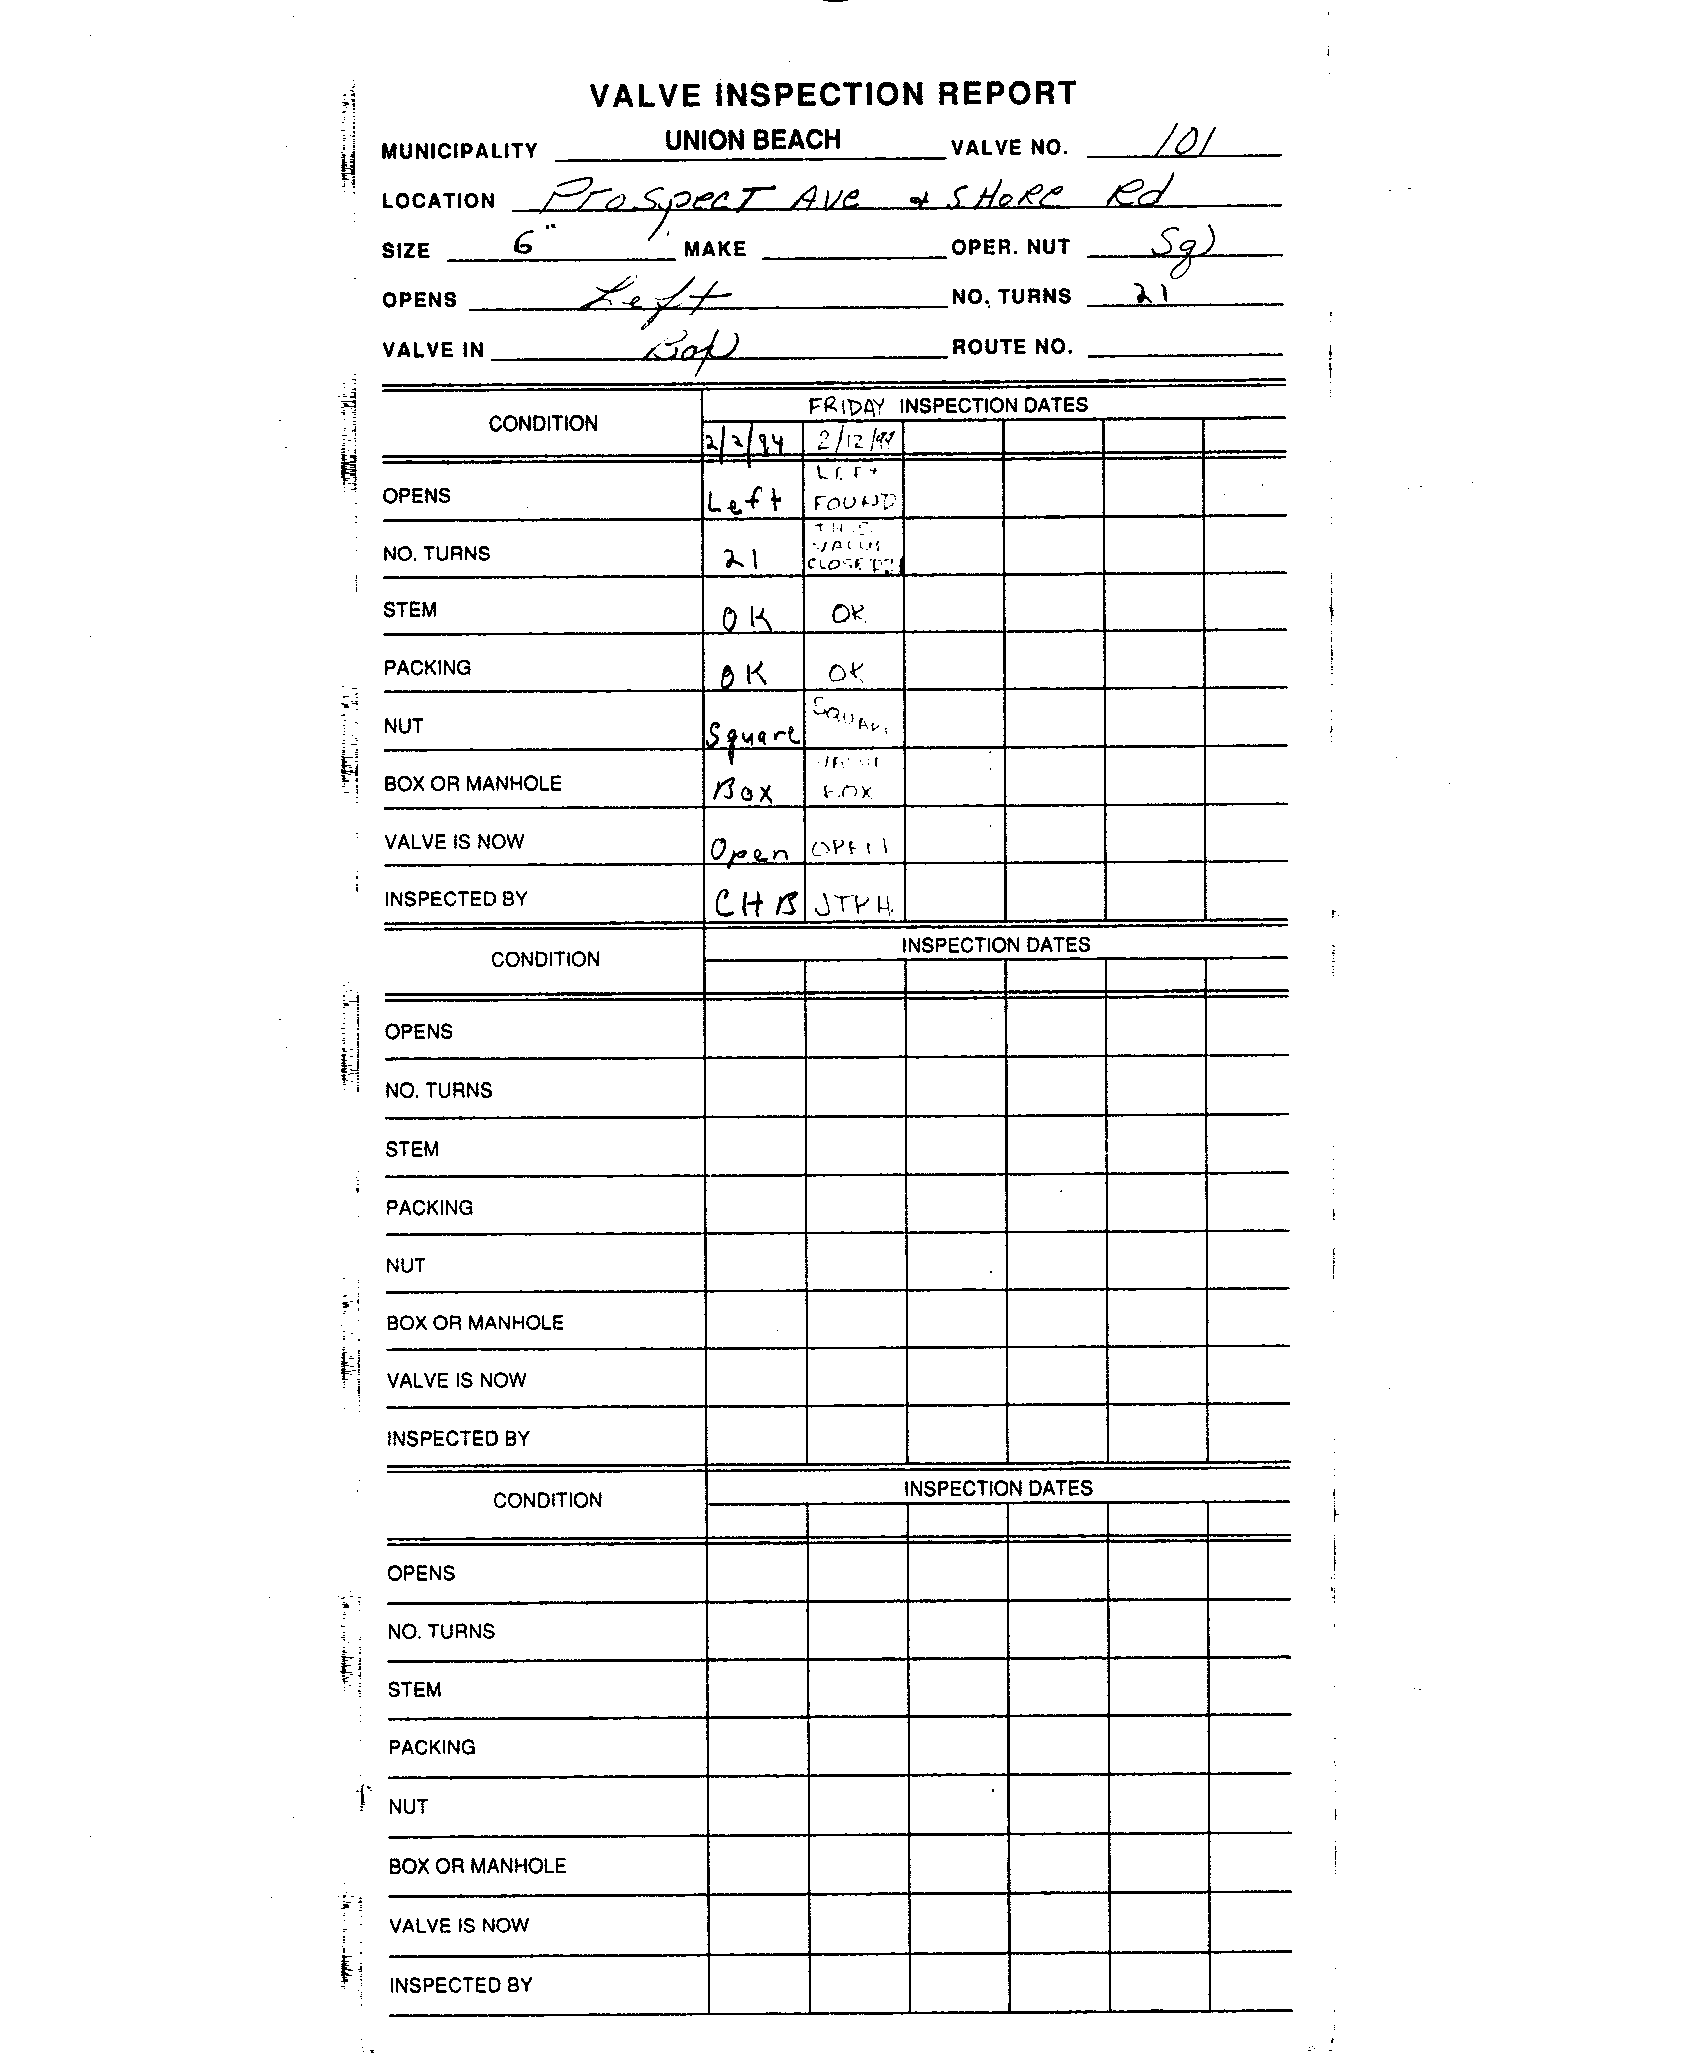 VALVE INSPECTION REPORT
MUNICIPALITY UNION BEACH VALVE NO. 101
LOCATION Prospect Ave & SHORE Rd
SIZE 6" MAKE OPER. NUT Sq
OPENS Left NO. TURNS 21
VALVE IN Box ROUTE NO.
CONDITION FRIDAY INSPECTION DATES
2/2/94 2/12/99
LEFT
OPENS Left FOUND
THE
VALVE
NO. TURNS 21 CLOSED
STEM OK OK
PACKING OK OK
NUT Square SQUARE
VALVE
BOX OR MANHOLE Box BOX
VALVE IS NOW Open OPEN
INSPECTED BY CHB
CONDITION INSPECTION DATES
OPENS
NO. TURNS
STEM
PACKING
NUT
BOX OR MANHOLE
VALVE IS NOW
INSPECTED BY
CONDITION INSPECTION DATES
OPENS
NO. TURNS
STEM
PACKING
NUT
BOX OR MANHOLE
VALVE IS NOW
INSPECTED BY